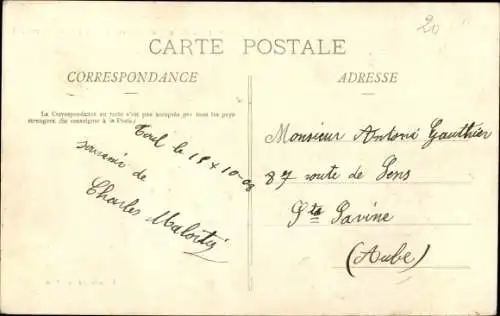 20
CARTE POSTALE
CORRESPONDANCE
ADRESSE
La Correspondance au recto n'est pas acceptée par tous les pays
étrangers (Se renseigner à la Poste.)
Toul le 18 x 10-08
souvenir de
Charles
Monsieur Antoni Gauthier
87 route de Sens
Ste Savine
(Aube)